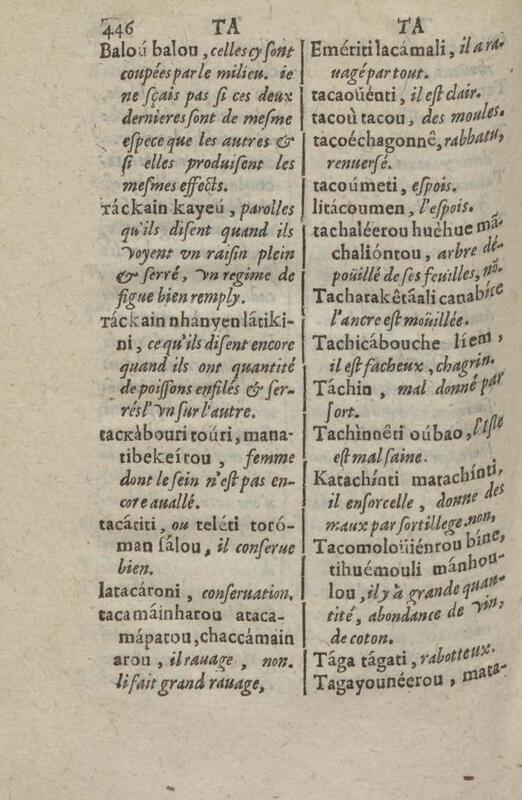 446 TA TA
Baloú balou, celles cy ſont
coupées par le milieu. ie
ne ſçais pas ſi ces deux
dernieres ſont de meſme
eſpece que les autres &
ſi elles produiſent les
meſmes effects.
Táckain kayeú, parolles
qu'ils diſent quand ils
voyent vn raiſin plein
& ſerré, vn regime de
figue bien remply.
Táckain nhányen látiki-
ni, ce qu'ils diſent encore
quand ils ont quantité
de poiſſons enfilés & ſer-
rés l'vn ſur l'autre.
tackábouri toúri, mana-
tibekeírou, femme
dont le ſein n'eſt pas en-
core auallé.
tacátiti, ou teléti toró-
man ſálou, il conſerue
bien.
latacároni, conſeruation.
tacamáinharou ataca-
máparou, chaccámain
arou, il rauage, non.
li fait grand rauage,
Emériti lacámali, il a ra-
uagé par tout.
tacaoüénti, il eſt clair.
tacoù tacou, des moules.
tacoéchagonnê, rabbatu,
renuerſé.
tacoúmeti, eſpois.
litácoumen, l'eſpois.
tachaléerou huéhue má-
chalióntou, arbre dé-
poüillé de ſes feuilles, nō.
Tacharakêtáali canabíre
l'ancre eſt moüillée.
Tachicábouche líem,
il eſt facheux, chagrin.
Táchin, mal donné par
ſort.
Tachìnnêti oúbao, l'Iſle
eſt mal ſaine.
Katachínti matachínti,
il enſorcelle, donne des
maux par ſortillege. non,
Tacomoloüiénrou bíne,
tihuémouli mánhou-
lou, il y à grande quan-
tité, abondance de vin,
de coton.
Tága tágati, rabotteux.
Tagayounéerou, mata-